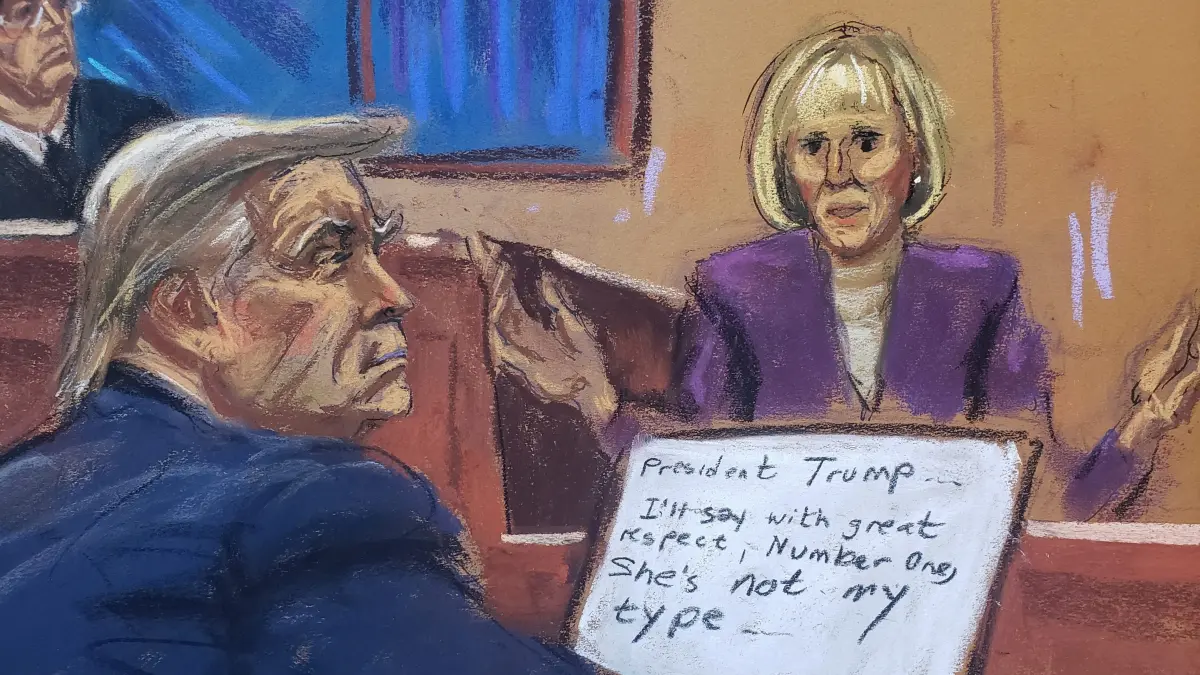 President Trump--
I'll say with great
respect, Number One,
She's not my
type --